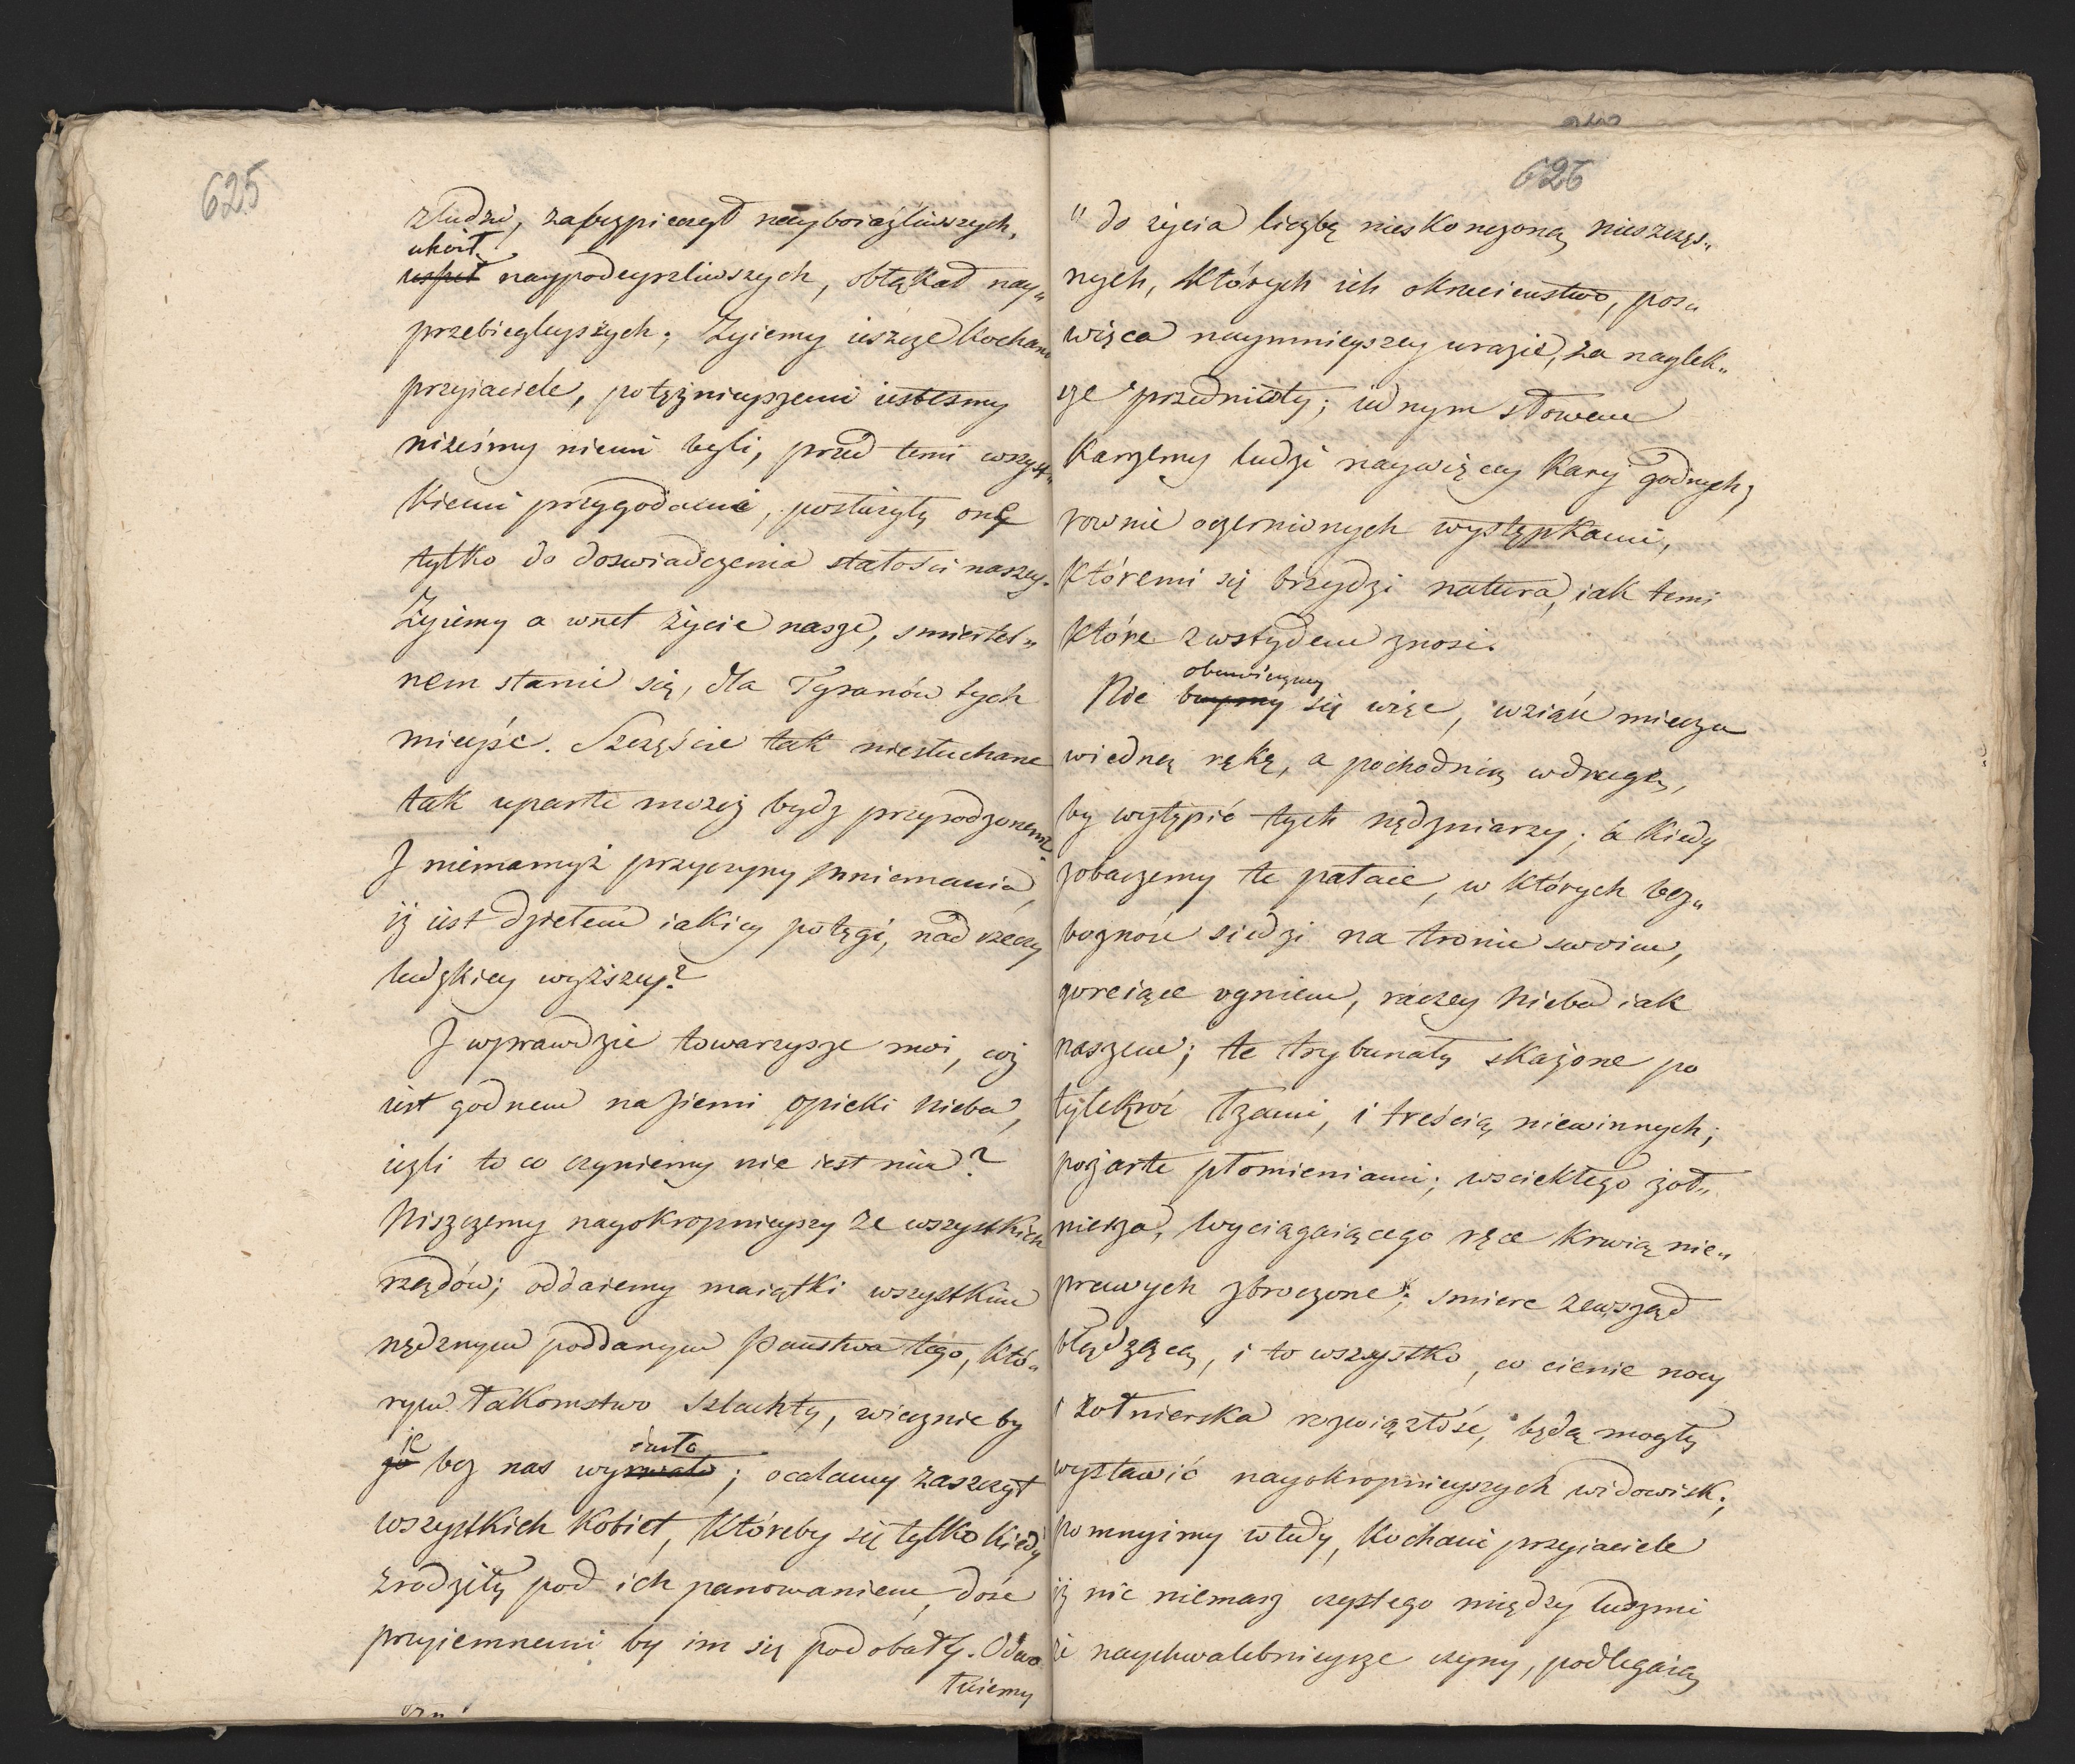 625
złudził, zabezpieczył naybojaźliwszych,
ukoił
uspił naypodeyrzliwszych, obłąkał nay„
przebiegleyszych; Żyiemy ieszcze kochani
przyiaciele, potężnieyszemi iestesmy
niześmy niemi byli, przed temi wszyst„
kiemi przygodami, posłużyły one
tylko do doswiadczenia stałości naszey.
Żyiemy a wnet życie nasze, smiertel„
nem stanie się, dla Tyranów tych
mieysc. Szczęście tak niesłuchane
tak uparte możeż bydz przyrodzonem?
J niemamyż przyczyny mniemania,
iż iest dziełem iakiey potęgi, nad rzeczy
ludzkiey wyższey?
J wprawdzie towarzysze moi, coż
iest godnem na ziemi opieki nieba,
ieżli to co czyniemy nie iest nim?
Niszczemy nayokropnieyszy ze wszystkich
rządów; oddaiemy maiątki wszystkim
nędznym poddanym Państwa tego, któ„
rym łakomstwo szlachty, wiecznie by
ie
go bez nas wyrwało; ocalamy zaszczyt
wszystkich kobiet, któreby się tylko kiedy
zrodziły pod ich panowaniem, dość
przyiemnemi by im się podobały. Odwo
łuiemy
626
„ do życia liczbę nieskonczoną nieszczęs„
nych, których ich okrucieństwo, pos„
więca naymnieyszey urazie, za naylek„
sze przedmioty; iednym słowem
karzemy ludzi naywięcey kary godnych,
rownie oczernionych występkami,
któremi się brzydzi natura, iak temi
które z wstydem znosi.
Nie buymy się więc, wziąść miecza
w iedną rękę, a pochodnią w drugą,
by wytępić tych nędzniarzy; a kiedy
zobaczemy te pałace, w których bez„
bożność siedzi na tronie swoim,
goreiące ogniem, raczey nieba iak
naszem; te trybunały skażone po
tylekroć łzami, i treścią niewinnych;
pożarte płomieniami; wsciekłego żoł„
nierza, wyciągaiącego ręce krwią nie„
prawych zbroczone; smierc zewsząd
błądzącą, i to wszystko, co cienie nocy
i żołnierska rozwiązłość, będą mogły
wystawić nayokropnieyszych widowisk;
pomnyimy wtedy, kochani przyiaciele
iż nic niemasz czystego między ludzmi
że naychwalebnieysze czyny, podlegaią